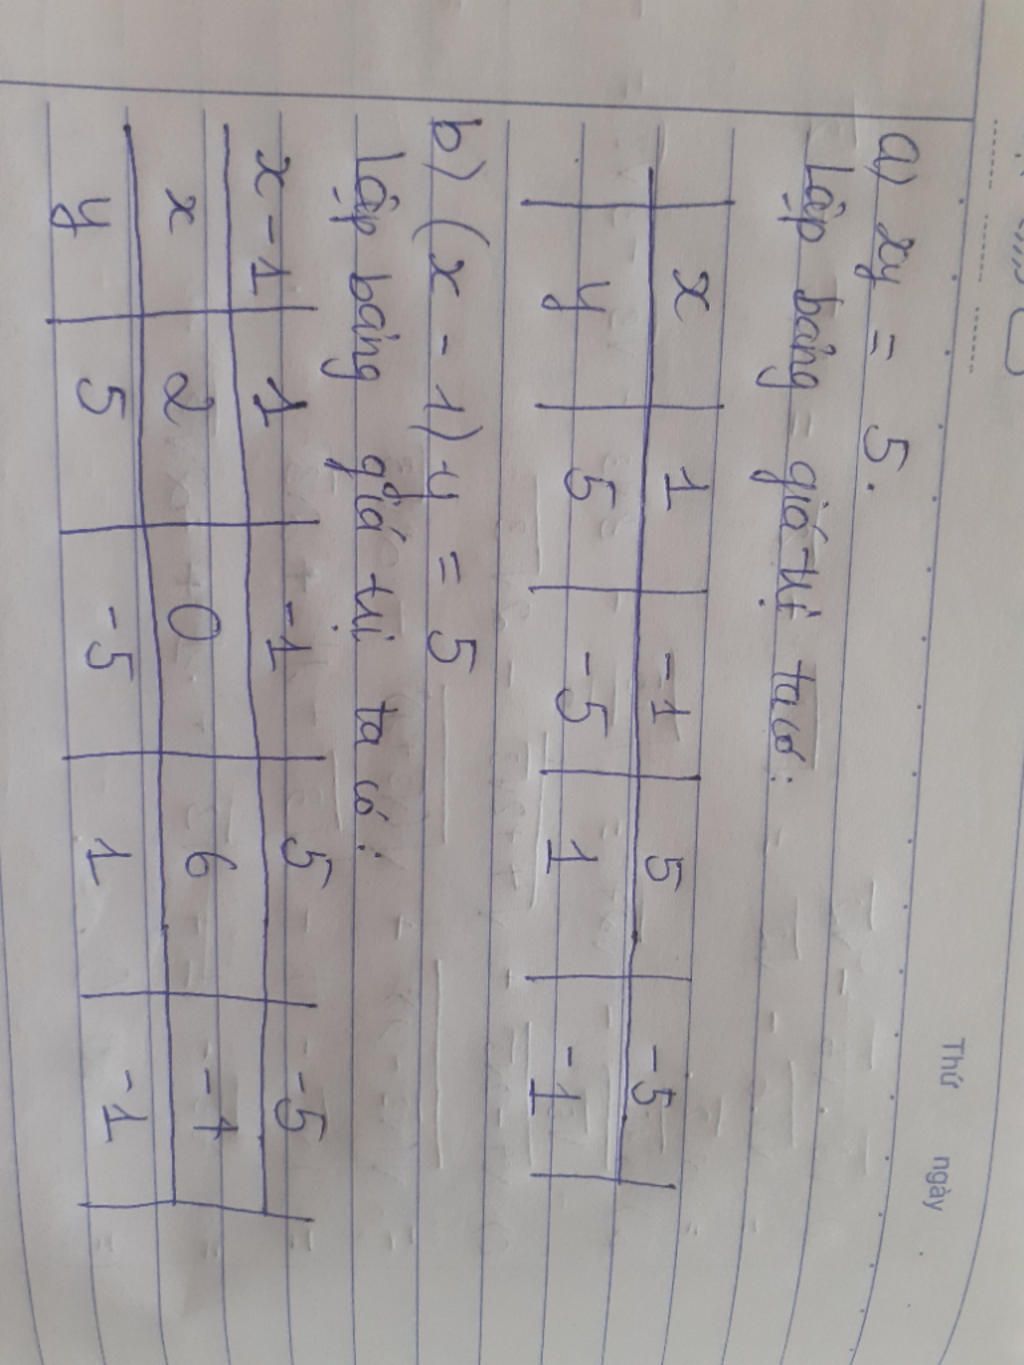 Thứ ngày
a) xy = 5.
Lập bảng giá trị ta có:
x 1 -1 5 -5
y 5 -5 1 -1
b) (x - 1) y = 5
Lập bảng giá trị ta có:
x-1 1 -1 5 -5
x 2 0 6 -4
y 5 -5 1 -1